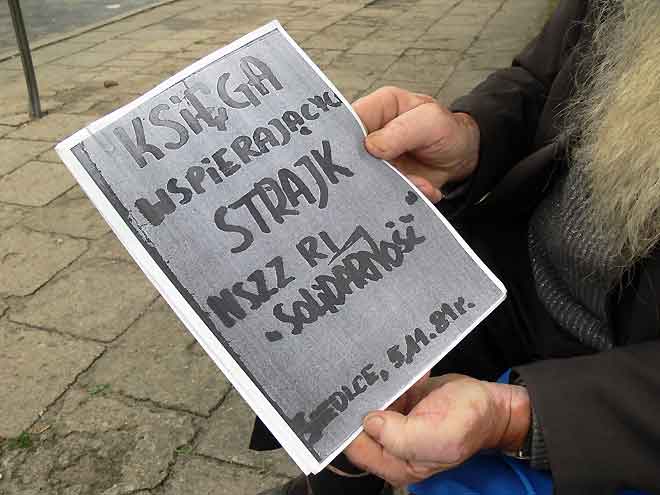 "KSIĘGA
WSPIERAJĄCYCH
STRAJK"
NSZZ RI
"SOLIDARNOŚĆ"
SIEDLCE, 5.11.81r.